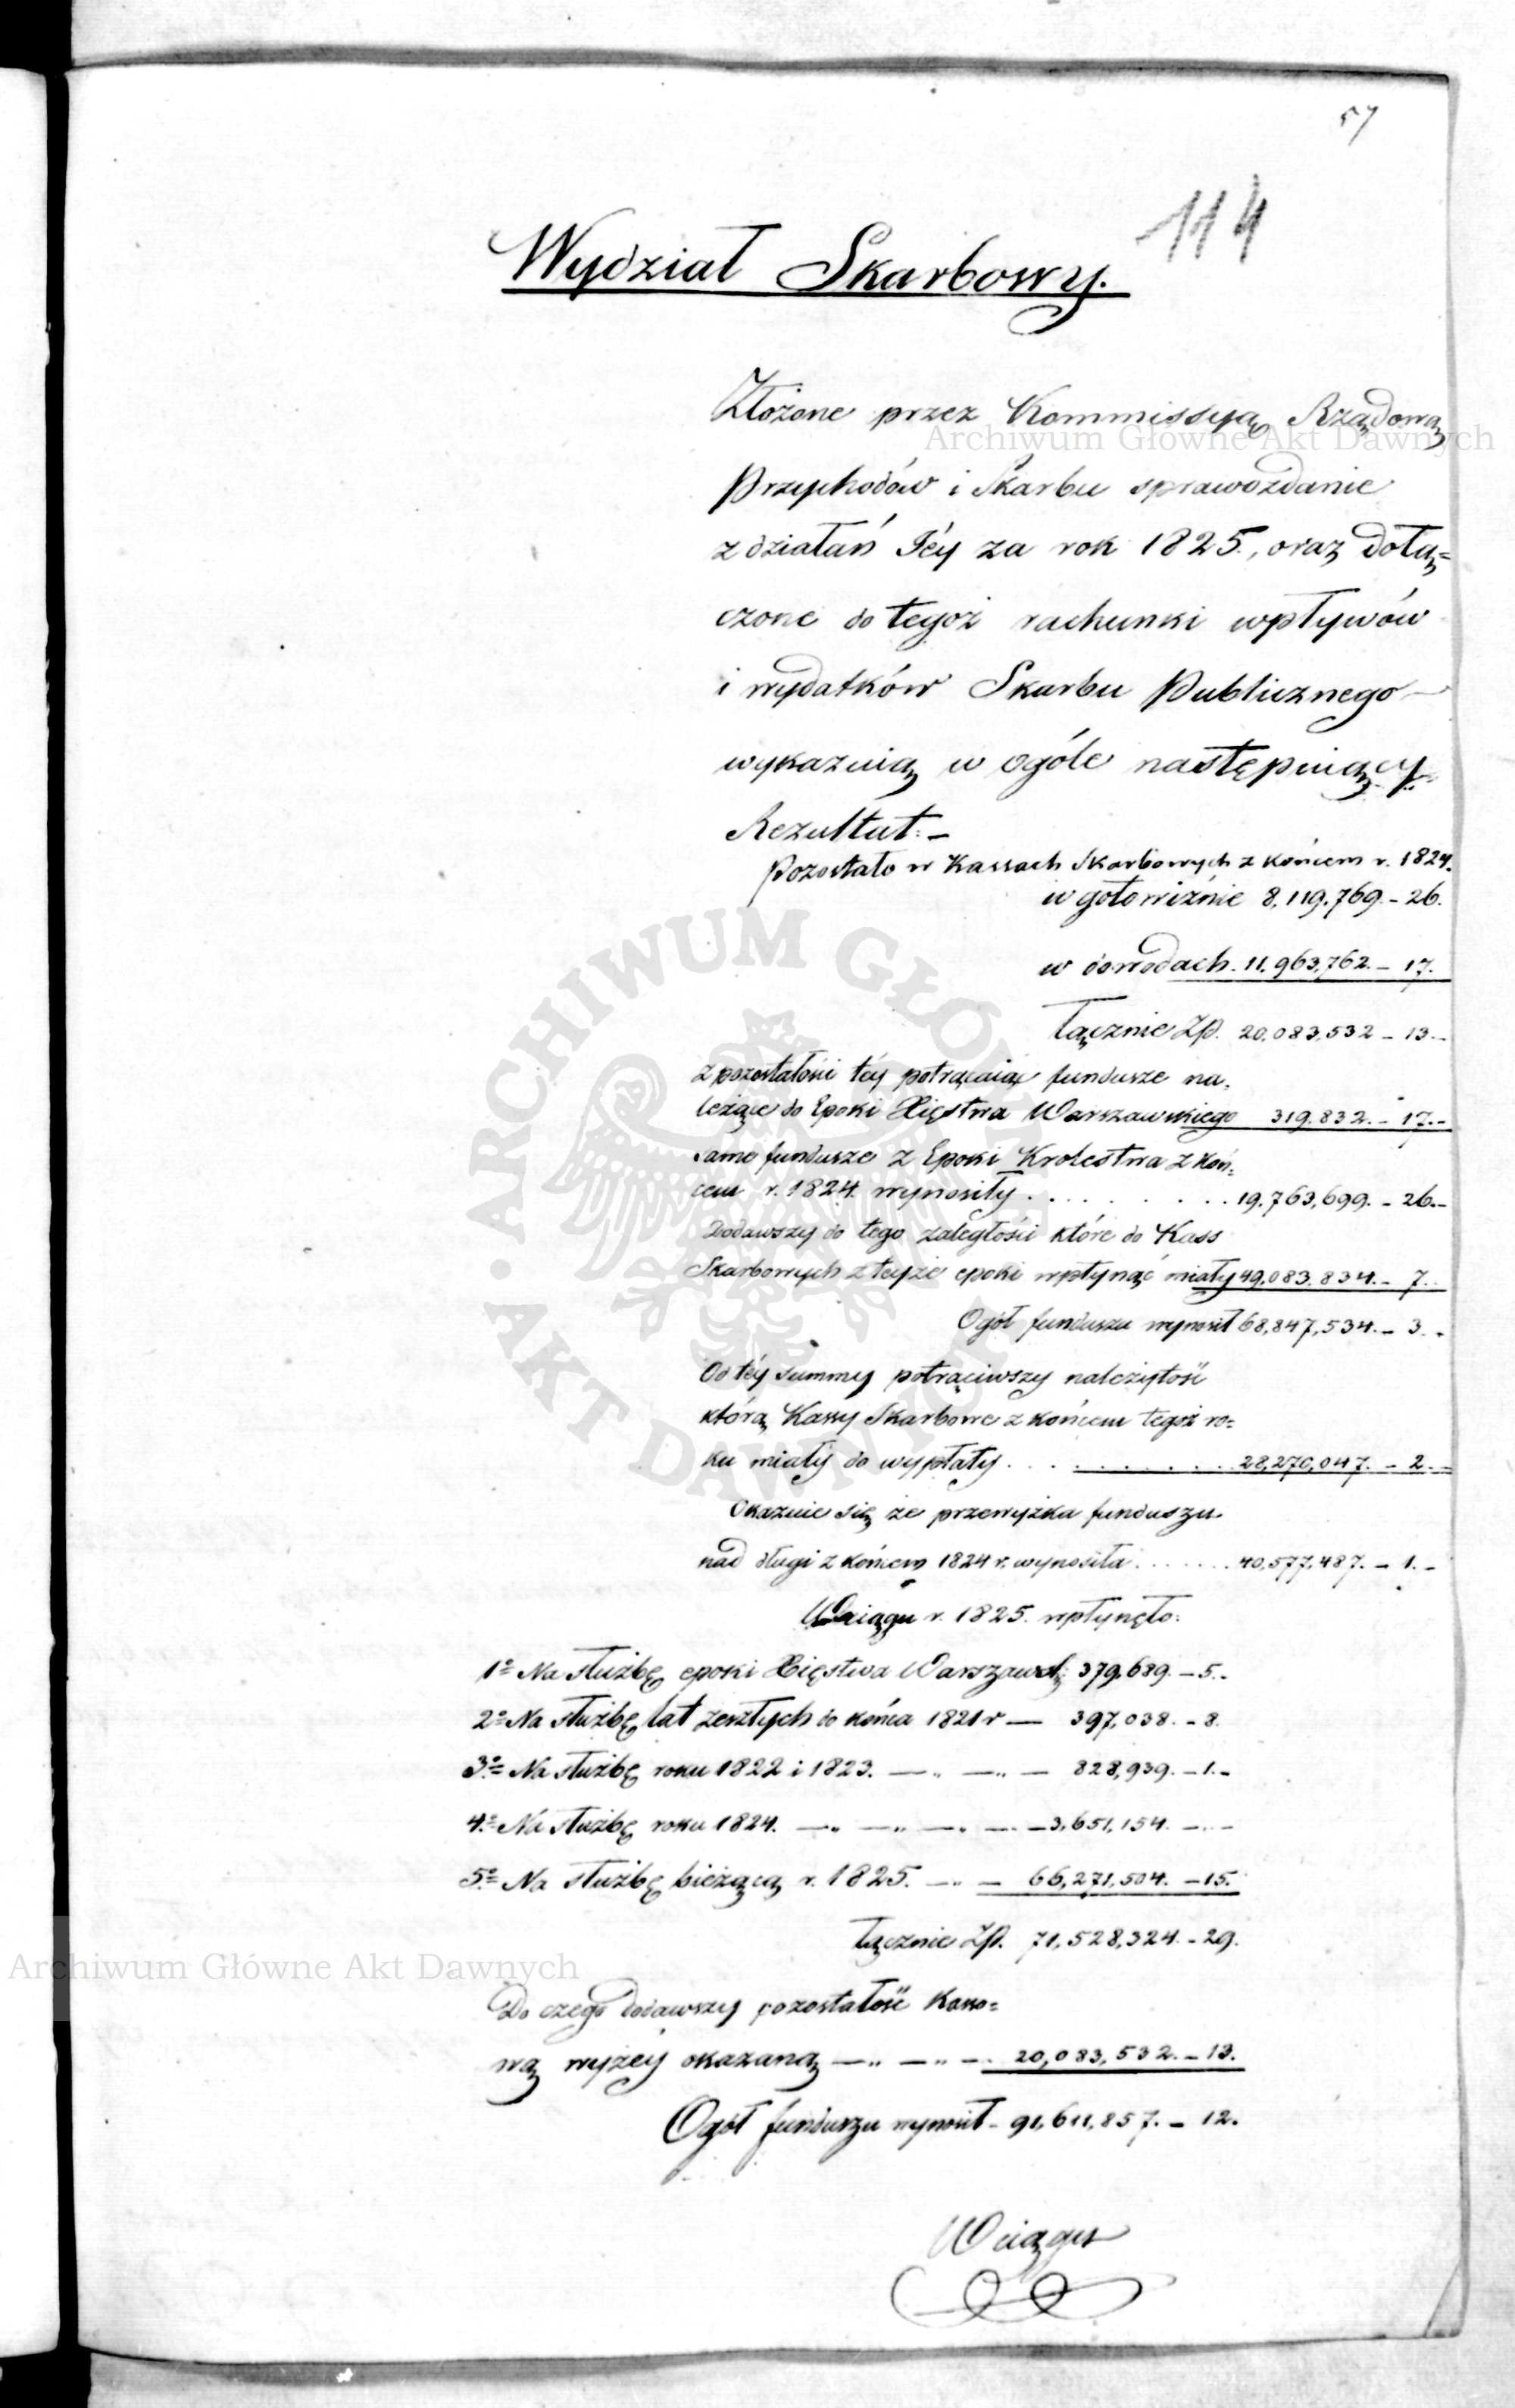 57
114
Wydział Skarbowy.
Złożone przez Kommissyą Rządową
Przychodów i Skarbu sprawozdanie
z działań Jéy za rok 1825., oraz dołą=
czone do tegoż rachunki wpływów
i wydatków Skarbu Publicznego —
wykazuią w ogóle następuiący
Rezultat: —
Pozostało w Kassach Skarbowych z końcem r. 1824.
w gotowiźnie 8,119,769. - 26.
w dowodach. 11,963,762. - 17.
łącznie Zp. 20,083,532 - 13. -
z pozostałości téy potrącaiąc fundusze na,
leżące do Epoki Xięstwa Warszawskiego 319.832. - 17. -
same fundusze z Epoki Krolestwa z koń=
cem r. 1824. wynosiły . . . . . . . . . 19,763,699. - 26. -
Dodawszy do tego zaległości które do Kass
Skarbowych z teyże epoki wpłynąć miały 49,083,834. - 7. -
Ogół funduszu wynosił 68,847,534. - 3. -
Od téy summy potrąciwszy należytość
którą Kassy Skarbowe z końcem tegoż ro=
ku miały do wypłaty . . . . . . . . . 28,270,047. - 2. -
Okazuie się że przewyżka funduszu
nad długi z końcem 1824 r. wynosiła . . . . . . 40,577,487. - 1. -
W ciągu r. 1825. wpłynęło:
1º Na służbę epoki Xięstwa Warszawsk: 379,689. - 5. -
2º Na służbę lat zeszłych do końca 1821 r — 397,038. - 8.
3º Na służbę roku 1822 i 1823. — „ — „ — 828,939. - 1. -
4º Na służbę roku 1824. — „ — „ — „ — 3,651,154. — . —
5º Na służbę bieżącą r. 1825. — „ — 66,271,504. - 15.
łącznie Zp. 71,528,324. - 29.
Do czego dodawszy pozostałość Kasso=
wą wyżéy okazaną — „ — „ — 20,083,532. - 13.
Ogół funduszu wynosił - 91,611,857. - 12.
W ciągu
Archiwum Główne Akt Dawnych
Archiwum Główne Akt Dawnych
ARCHIWUM GŁÓWNE • AKT DAWNYCH •